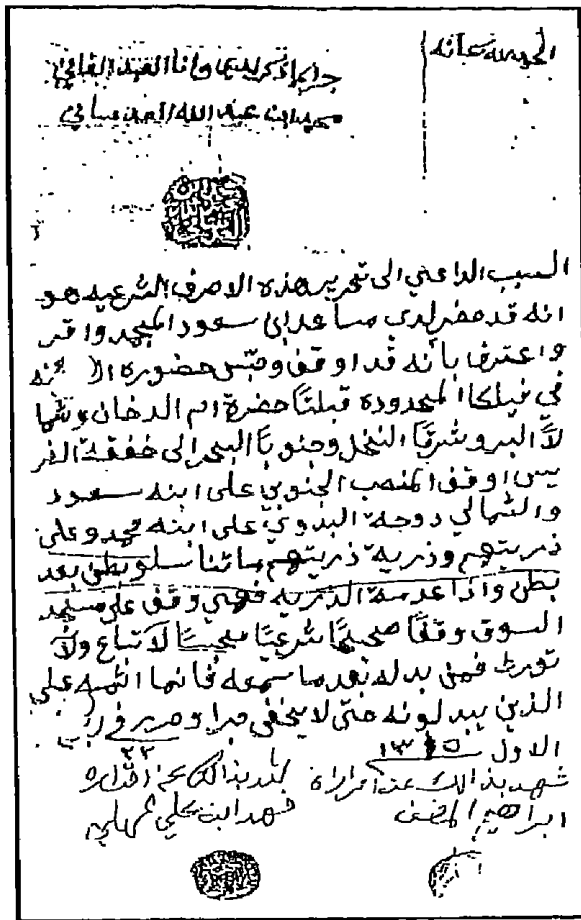 الحمد لله سبحانه
جرا ما ذكر لديها وانا العبد الفاني
محمد ابن عبد الله العدساني
السبب الداعي الى تحرير هذه الاحرف الشرعيه هو
انه قد حضر لدي مساعد ابن سعود واقر
واعترف بأنه قد اوقف وحبس حضوره
في فيلكا المحدوده قبلتًا حضرة ام الدخان وشما
لاً البر وشرقًا النخل وجنوبًا البحر الى
اوقف المنصب الجنوبي على ابنه سعود
والشمالي دوحة البدوي على ابنه محمد وعلى
ذريتهم وذرية ذريتهم ما تناسلو بطن بعد
بطن واذا عدمة الذريه فهي وقف على مسجد
السوق وقفًا صحيحًا شرعيًا محبسًا لا تباع ولا
تورث فمن بدله بعد ما سمعه فانما اثمه على
الذين يبدلونه حتى لا يخفى جرا وحرر في ربيع
الاول
شهد بذالك عند اقراره
شهد بذالك عند اقراره
ابراهيم المضف
فهد ابن علي